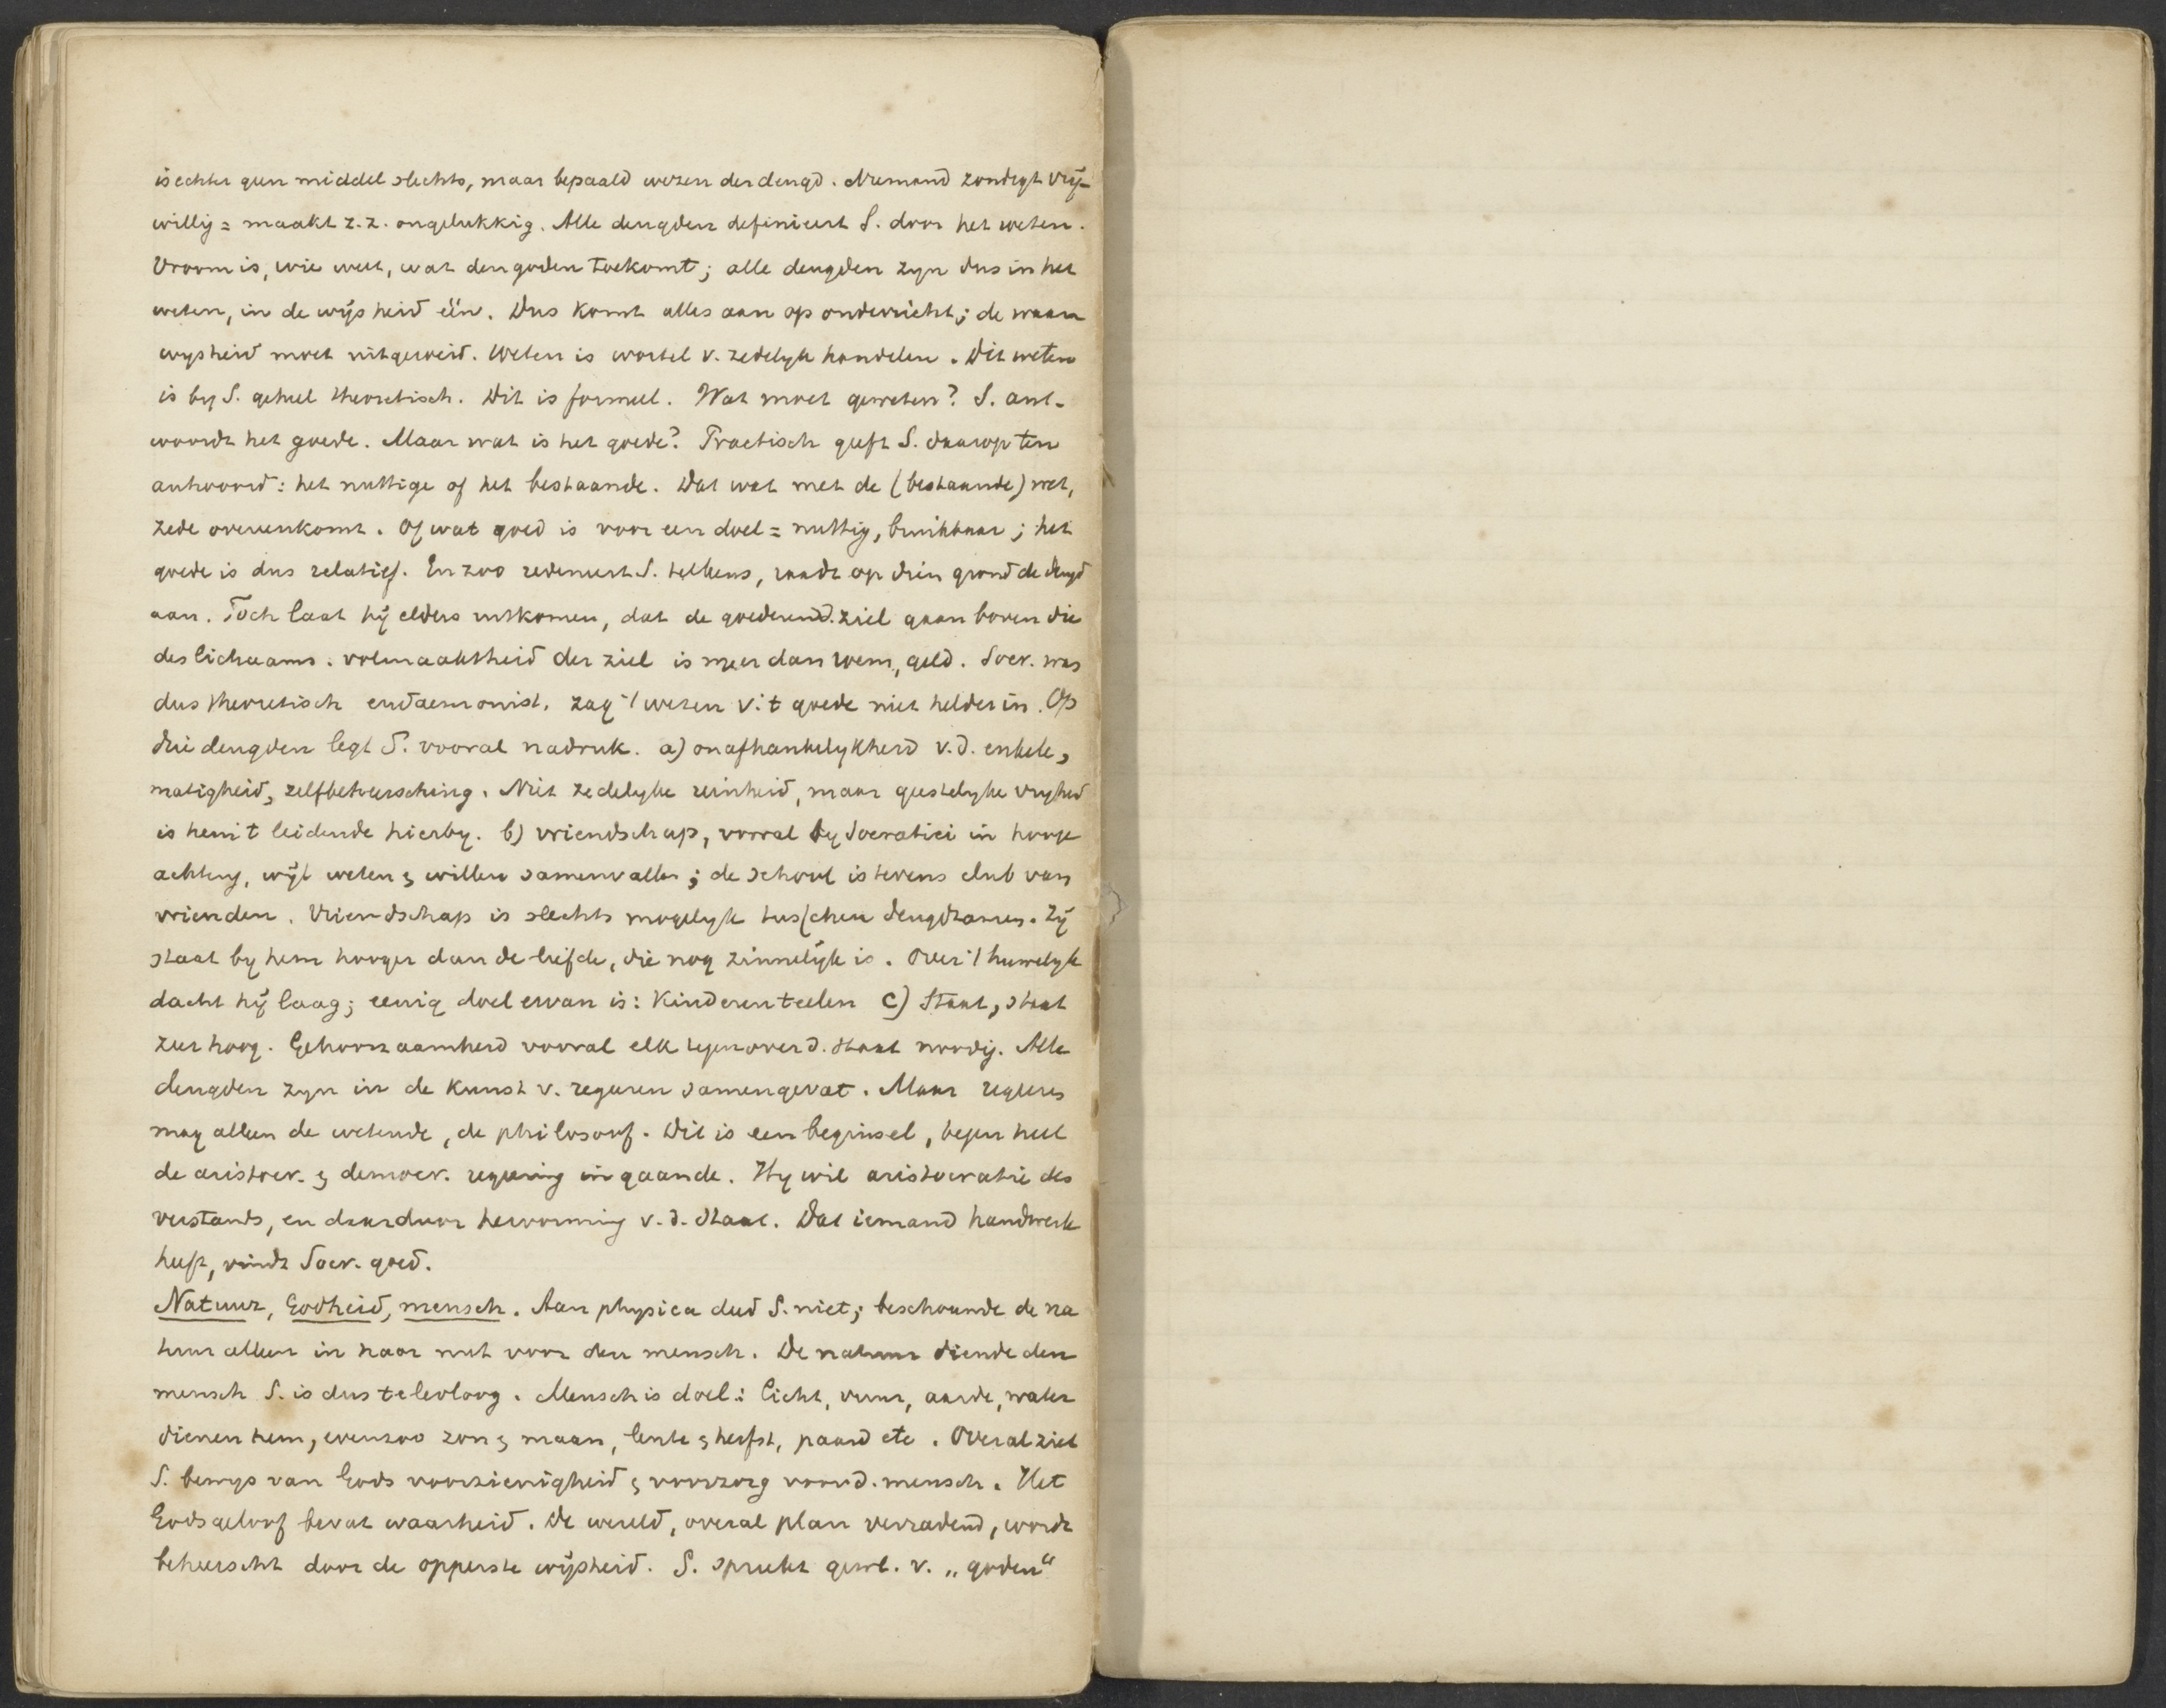 is echter geen middel slechts, maar bepaald wezen der deugd. Niemand zondigt vrij-
willig = maakt z.z. ongelukkig. Alle deugden definieert S. door het weten.
Vroom is, wie weet, wat den goden toekomt; alle deugden zyn dus in het
weten, in de wijsheid één. Dus komt alles aan op onderricht; de waan
wysheid moet uitgeroeid. Weten is wortel v. zedelyk handelen. Dit weten
is by S. geheel theoretisch. Dit is formeel. Wat moet geweten? S. ant-
woordt het goede. Maar wat is het goede? Practisch geeft S. daarop ten
antwoord: het nuttige of het bestaande. Dat wat met de (bestaande) wet,
zede overeenkomt. Of wat goed is voor een doel = nuttig, bruikbaar; het
goede is dus relatief. En zoo redeneert S. telkens, raadt op dien grond de deugd
aan. Toch laat hij elders uitkomen, dat de goederen d. ziel gaan boven die
des lichaams. volmaaktheid der ziel is meer dan roem, geld. Socr. was
dus theoretisch eudaemonist, zag 't wezen v. 't goede niet helder in. Op
drie deugden legt S. vooral nadruk. a) onafhankelykheid v.d. enkele,
matigheid, zelfbeheersching. Niet zedelyke reinheid, maar geestelyke vryheid
is hem 't leidende hierby. b) vriendschap, vooral by Socratici in hooge
achting, wijl weten & willen samenvallen; de school is tevens club van
vrienden. Vriendschap is slechts mogelyk tusschen deugdzamen. Zij
staat by hem hooger dan de liefde, die nog zinnelijk is. Over 't huwelyk
dacht hij laag; eenig doel ervan is: Kinderen teelen c) Staat, staat
zeer hoog. Gehoorzaamheid vooral elk tegenover d. staat noodig. Alle
deugden zyn in de kunst v. regeeren samengevat. Maar regeeren
mag alleen de wetende, de philosoof. Dit is een beginsel, tegen heel
de aristocr. & democr. regeering ingaande. Hy wil aristocratie des
verstands, en daardoor hervorming v.d. staat. Dat iemand handwerk
heeft, vindt Socr. goed.
Natuur, Godheid, mensch. Aan physica deed S. niet; beschouwde de na
tuur alleen in haar nut voor den mensch. De natuur diende den
mensch S. is dus teleoloog. Mensch is doel: licht, vuur, aarde, water
dienen hem, evenzoo zon & maan, lente & herfst, paard etc. Overal ziet
S. bewys van Gods voorzienigheid & voorzorg voor d. mensch. Het
Godsgeloof bevat waarheid. De wereld, overal plan verradend, wordt
beheerscht door de opperste wijsheid. S. spreekt gewl. v. „goden“